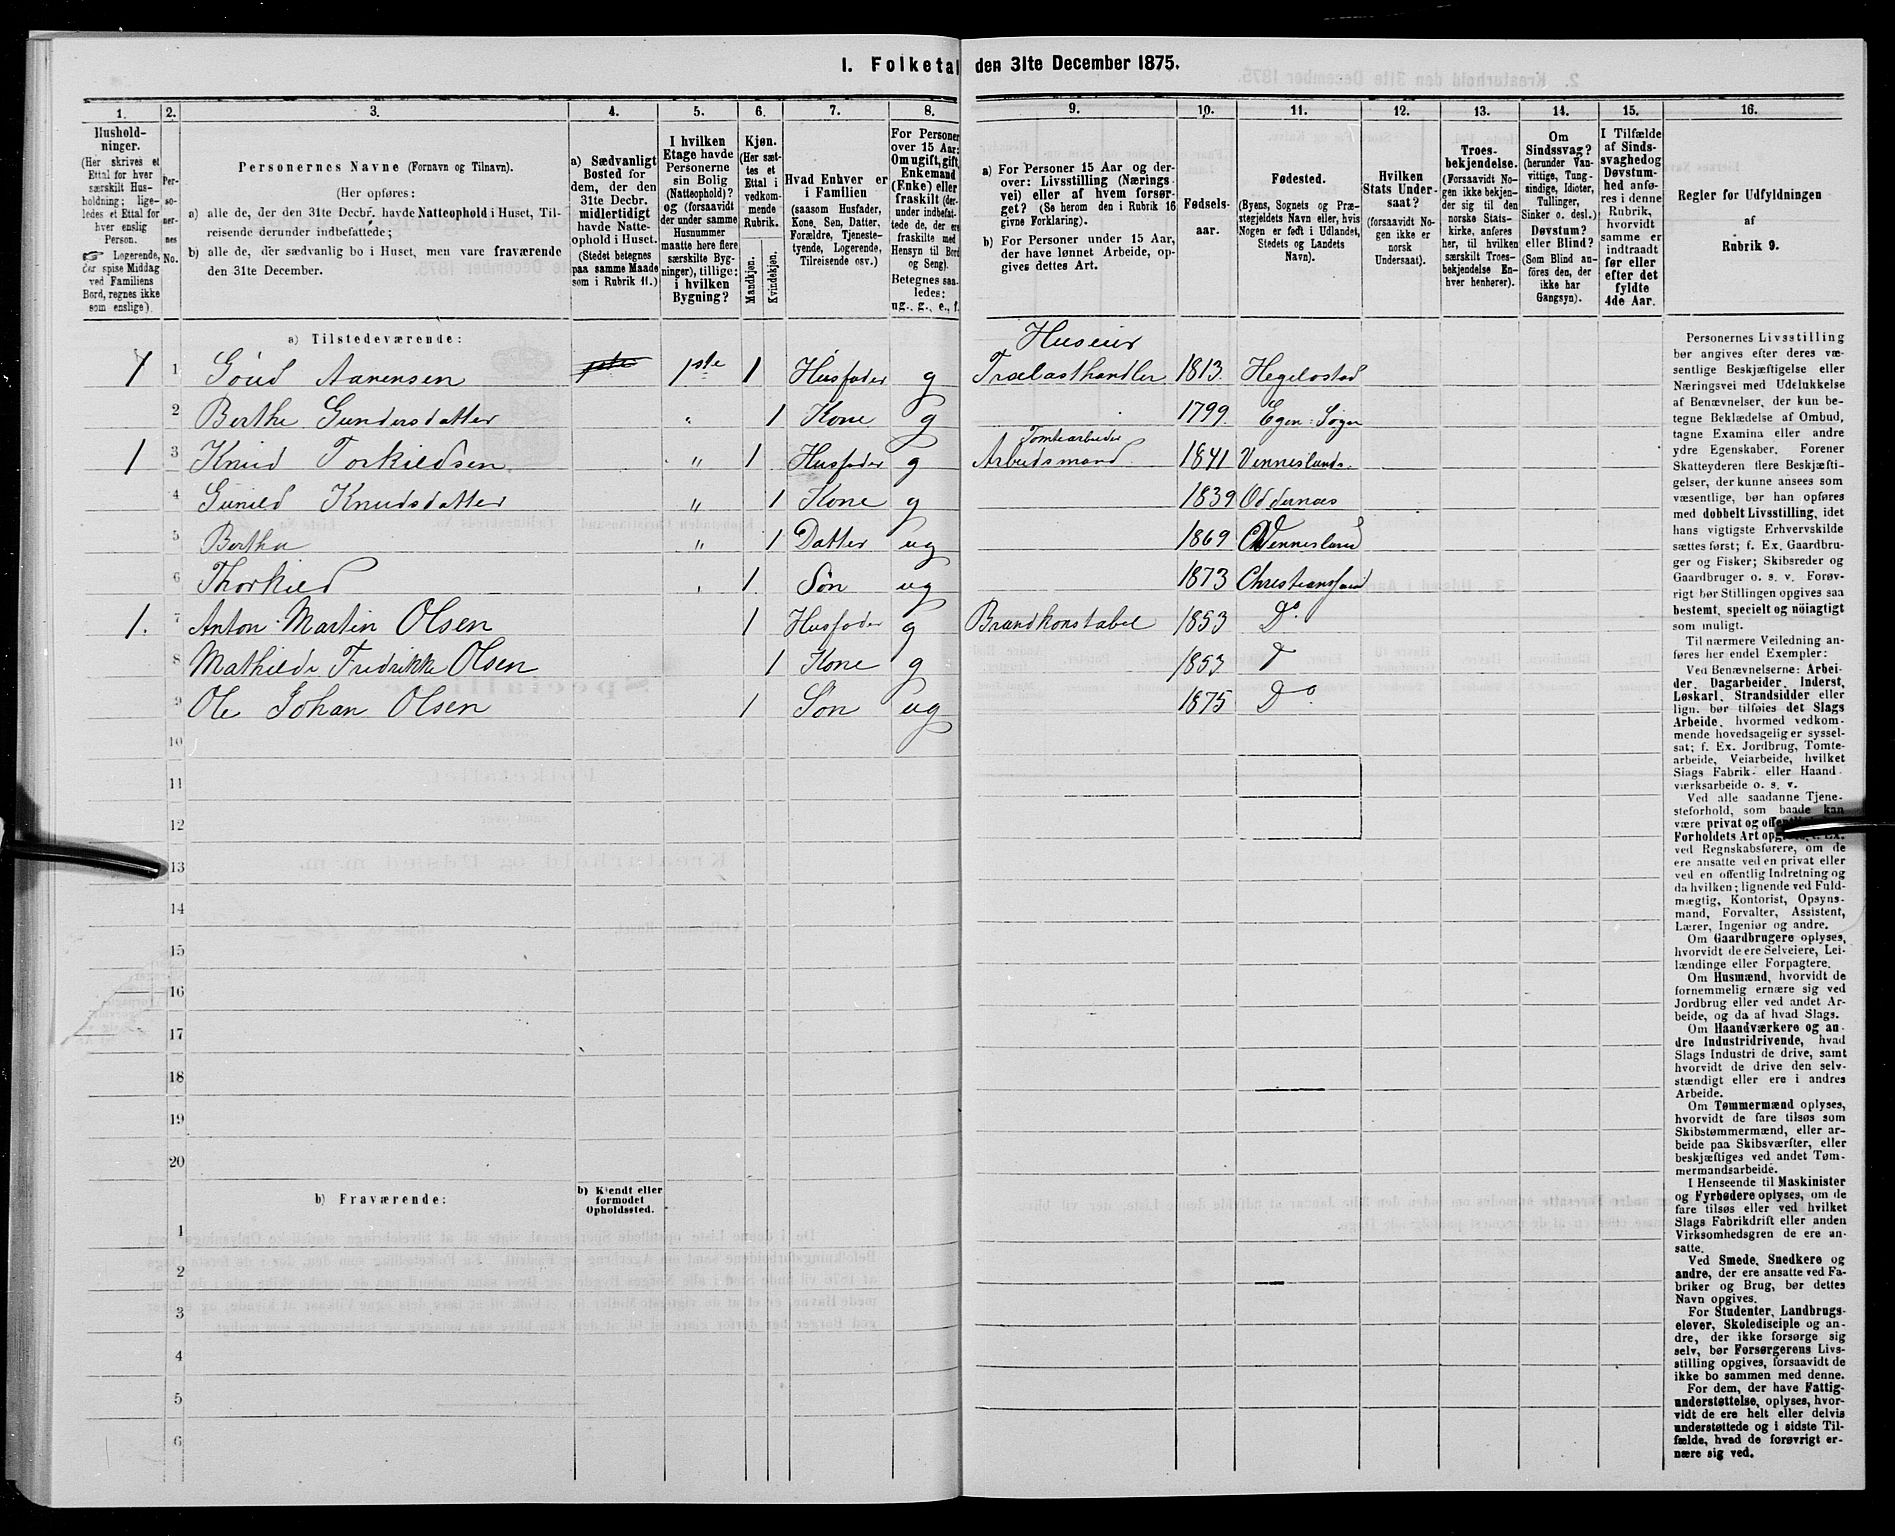 I. Folketal den 31te December 1875.
1. 2. 3. 4. 5. 6. 7. 8. 9. 10. 11. 12. 13. 14. 15. 16.
Hushold-
ninger.
(Her skrives et
Ettal for hver
særskilt Hus-
holdning; lige-
ledes et Ettal for
hver enslig
Person.
☞ Logerende,
der spise Middag
ved Familiens
Bord, regnes ikke
som enslige).
Per-
so-
ner-
nes
No.
Personernes Navne (Fornavn og Tilnavn).
(Her opføres:
a) alle de, der den 31te Decbr. havde Natteophold i Huset, Til-
reisende derunder indbefattede;
b) alle de, der sædvanlig bo i Huset, men vare fraværende
den 31te December.
a) Sædvanligt
Bosted for
dem, der den
31te Decbr.
midlertidigt
havde Natte-
ophold i Huset.
(Stedet betegnes
paa samme Maade
som i Rubrik 11.)
I hvilken
Etage havde
Personerne
sin Bolig
(Natteophold)?
og (forsaavidt
der under samme
Husnummer
maatte høre flere
særskilte Byg-
ninger), tillige:
i hvilken
Bygning?
Kjøn.
(Her sæt-
tes et
Ettal i
vedkom-
mende
Rubrik.)
Mandkjøn.
Kvindekjøn.
Hvad Enhver er
i Familien
(saasom Husfader,
Kone, Søn, Datter,
Forældre, Tjeneste-
tyende, Logerende,
Tilreisende osv.)
For Personer
over 15 Aar:
Om ugift, gift,
Enkemand
(Enke) eller
fraskilt (der-
under indbefat-
tede de, der ere
fraskilte med
Hensyn til Bord
og Seng).
Betegnes saa-
ledes:
ug., g., e., f.
a) For Personer 15 Aar og der-
over: Livsstilling (Nærings-
vei) eller af hvem forsør-
get? (Se herom den i Rubrik 16
givne Forklaring).
b) For Personer under 15 Aar,
der have lønnet Arbeide, op-
gives dettes Art.
Fødsels-
aar.
Fødested.
(Byens, Sognets og Præ-
stegjeldets Navn eller, hvis
Nogen er født i Udlandet,
Stedets og Landets
Navn).
Hvilken
Stats Under-
saat?
(forsaavidt No-
gen ikke er
norsk
Undersaat).
Troes-
bekjendelse.
(Forsaavidt No-
gen ikke bekjen-
der sig til den
norske Stats-
kirke, anføres
her, til hvilken
særskilt Troes-
bekjendelse En-
hver henhører).
Om
Sindssvag?
(herunder Van-
vittige, Tung-
sindige, Idioter,
Tullinger,
Sinker o. desl.)
Døvstum?
eller Blind?
(Som Blind an-
føres den, der
ikke har
Gangsyn).
I Tilfælde
af Sinds-
svaghed og
Døvstum-
hed anfø-
res i denne
Rubrik,
hvorvidt
samme er
indtraadt
før eller
efter det
fyldte
4de Aar.
Regler for Udfyldningen
af
Rubrik 9.
a) Tilstedeværende:
Huseier
1 1 Goud Aanensen 1ste 1 Husfader g Trælasthandler 1813 Hegelostad
2 Berthe Gundersdatter " 1 Kone g 1799 Egen: Sogn
Tomtearbeider
1 3 Knud Torkildsen " 1 Husfader g Arbeidsmand 1841 Venneslands.
4 Gunild Knudsdatter " 1 Kone g 1839 Oddernæs
5 Bertha " 1 Datter ug 1869 Vennesland
6 Thorkild " 1 Søn ug 1873 Christianssand
1. 7 Anton Martin Olsen 1 Husfader g Brandkonstabel 1853 Do
8 Mathilde Fredrikke Olsen 1 Kone g 1853
9 Ole Johan Olsen 1 Søn ug 1875 Do
10
11
12
13
14
15
16
17
18
19
20
b) Fraværende:
b) Kjendt eller
formodet
Opholdssted.
1
2
3
4
5
6
Personernes Livsstilling
bør angives efter deres væ-
sentlige Beskjæftigelse eller
Næringsvei med Udelukkelse
af Benævnelser, der kun be-
tegne Beklædelse af Ombud,
tagne Examina eller andre
ydre Egenskaber. Forener
Skatteyderen flere Beskjæfti-
gelser, der kunne ansees som
væsentlige, bør han opføres
med dobbelt Livsstilling, idet
hans vigtigste Erhvervskilde
sættes først; f. Ex. Gaardbru-
ger og Fisker; Skibsreder og
Gaardbruger o. s. v. Forøv-
rigt bør Stillingen opgives saa
bestemt, specielt og nöiagtigt
som muligt.
Til nærmere Veiledning an-
føres her endel Exempler:
Ved Benævnelserne: Arbei-
der, Dagarbeider, Inderst,
Løskarl, Strandsidder eller
lign. bør tilføies det Slags
Arbeide, hvormed vedkom-
mende hovedsagelig er syssel-
sat; f. Ex. Jordbrug, Tomte-
arbeide, Veiarbeide, hvilket
Slags Fabrik- eller Haand-
værksarbeide o. s. v.
Ved alle saadanne Tjene-
steforhold, som baade kan
være privat og
Forholdets Art
ved Regnskabsførere, om de
ere ansatte ved en privat eller
ved en offentlig Indretning og
da hvilken; lignende ved Fuld-
mægtig, Kontorist, Opsyns-
mand, Forvalter, Assistent,
Lærer, Ingeniør og andre.
Om Gaardbrugere oplyses,
hvorvidt de ere Selveiere, Lei-
lændinge eller Forpagtere.
Om Husmænd, hvorvidt de
fornemmelig ernære sig ved
Jordbrug eller ved andet Ar-
beide, og da af hvad Slags.
Om Haandværkere og an-
dre Industridrivende, hvad
Slags Industri de drive, samt
hvorvidt de drive den selv-
stændigt eller ere i andres
Arbeide.
Om Tømmermænd oplyses,
hvorvidt de fare tilsøs som
Skibstømmermænd, eller ar-
beide paa Skibsværfter, eller
beskjæftiges ved andet Tøm-
mermandsarbeide.
I Henseende til Maskinister
og Fyrbødere oplyses, om de
fare tilsøs eller ved hvilket
Slags Fabrikdrift eller anden
Virksomhedsgren de ere an-
satte.
Ved Smede, Snedkere og
andre, der ere ansatte ved Fa-
briker og Brug, bør dettes
Navn opgives.
For Studenter, Landbrugs-
elever, Skoledisciple og an-
dre, der ikke forsørge sig
selv, bør Forsørgerens Livs-
stilling opgives, forsaavidt de
ikke bo sammen med denne.
For dem, der have Fattig-
understøttelse, oplyses, hvor-
vidt de ere helt eller delvis
understøttede og i sidste Til-
fælde, hvad de forøvrigt er-
nære sig ved.